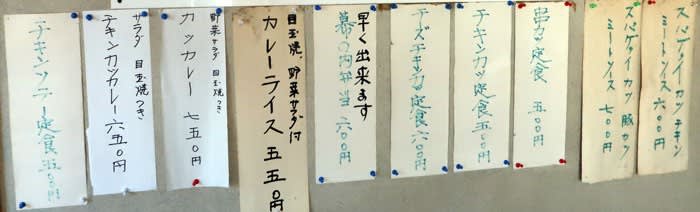 スパゲティイカツ チキン
ミートソース 六〇〇円
スパゲティイカツ 豚カツ
ミートソース 七〇〇円
串カツ定食 五〇〇円
チキンカツ定食 五〇〇円
チーズチキンカツ定食 六〇〇円
早く出来ます
幕の内弁当 六〇〇円
目玉焼、野菜サラダ付
カレーライス 五五〇円
野菜サラダ 目玉焼つき
カツカレー 七五〇円
サラダ 目玉焼つき
チキンカツカレー 六五〇円
チキンソテー定食 五〇〇円